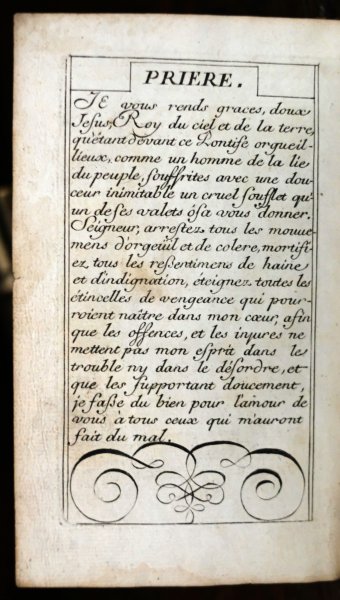 PRIERE.
JE vous rends graces, doux
Jesus, Roy du ciel et de la terre,
qu'étant dévant ce Pontife orgueil-
lieux, comme un homme de la lie
du peuple, souffrites avec une dou-
ceur inimitable un cruel soufflet qu'
un de ses valets ósa vous donner.
Seigneur, arrestez tous les mouve-
mens d'orgeüil et de colere, mortifi-
ez tous les ressentimens de haine
et d'indignation, éteignez toutes les
étincelles de vengeance qui pour-
roient naître dans mon cœur, afin
que les offences, et les injures ne
mettent pas mon esprit dans le
trouble ny dans le désordre, et
que les supportant doucement,
je fasse du bien pour l'amour de
vous à tous ceux qui m'auront
fait du mal.